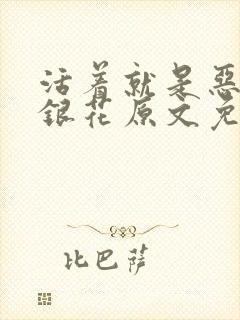 活着就是恶
銀花原文免
比巴萨